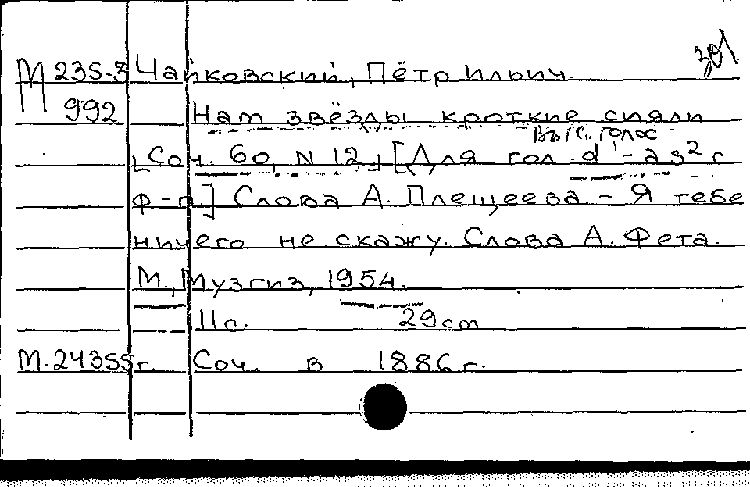 М 235-3 Чайковский, Пётр Ильич
992 Нам звёзды кроткие сияли
Выс. голос
[Соч. 60, N 12] [Для гол d¹-as² с
ф-п] Слова А. Плещеева - Я тебе
ничего не скажу. Слова А. Фета.
М., Музгиз, 1954.
11с. 29cm
М.24355г. Соч. в 1886 г.